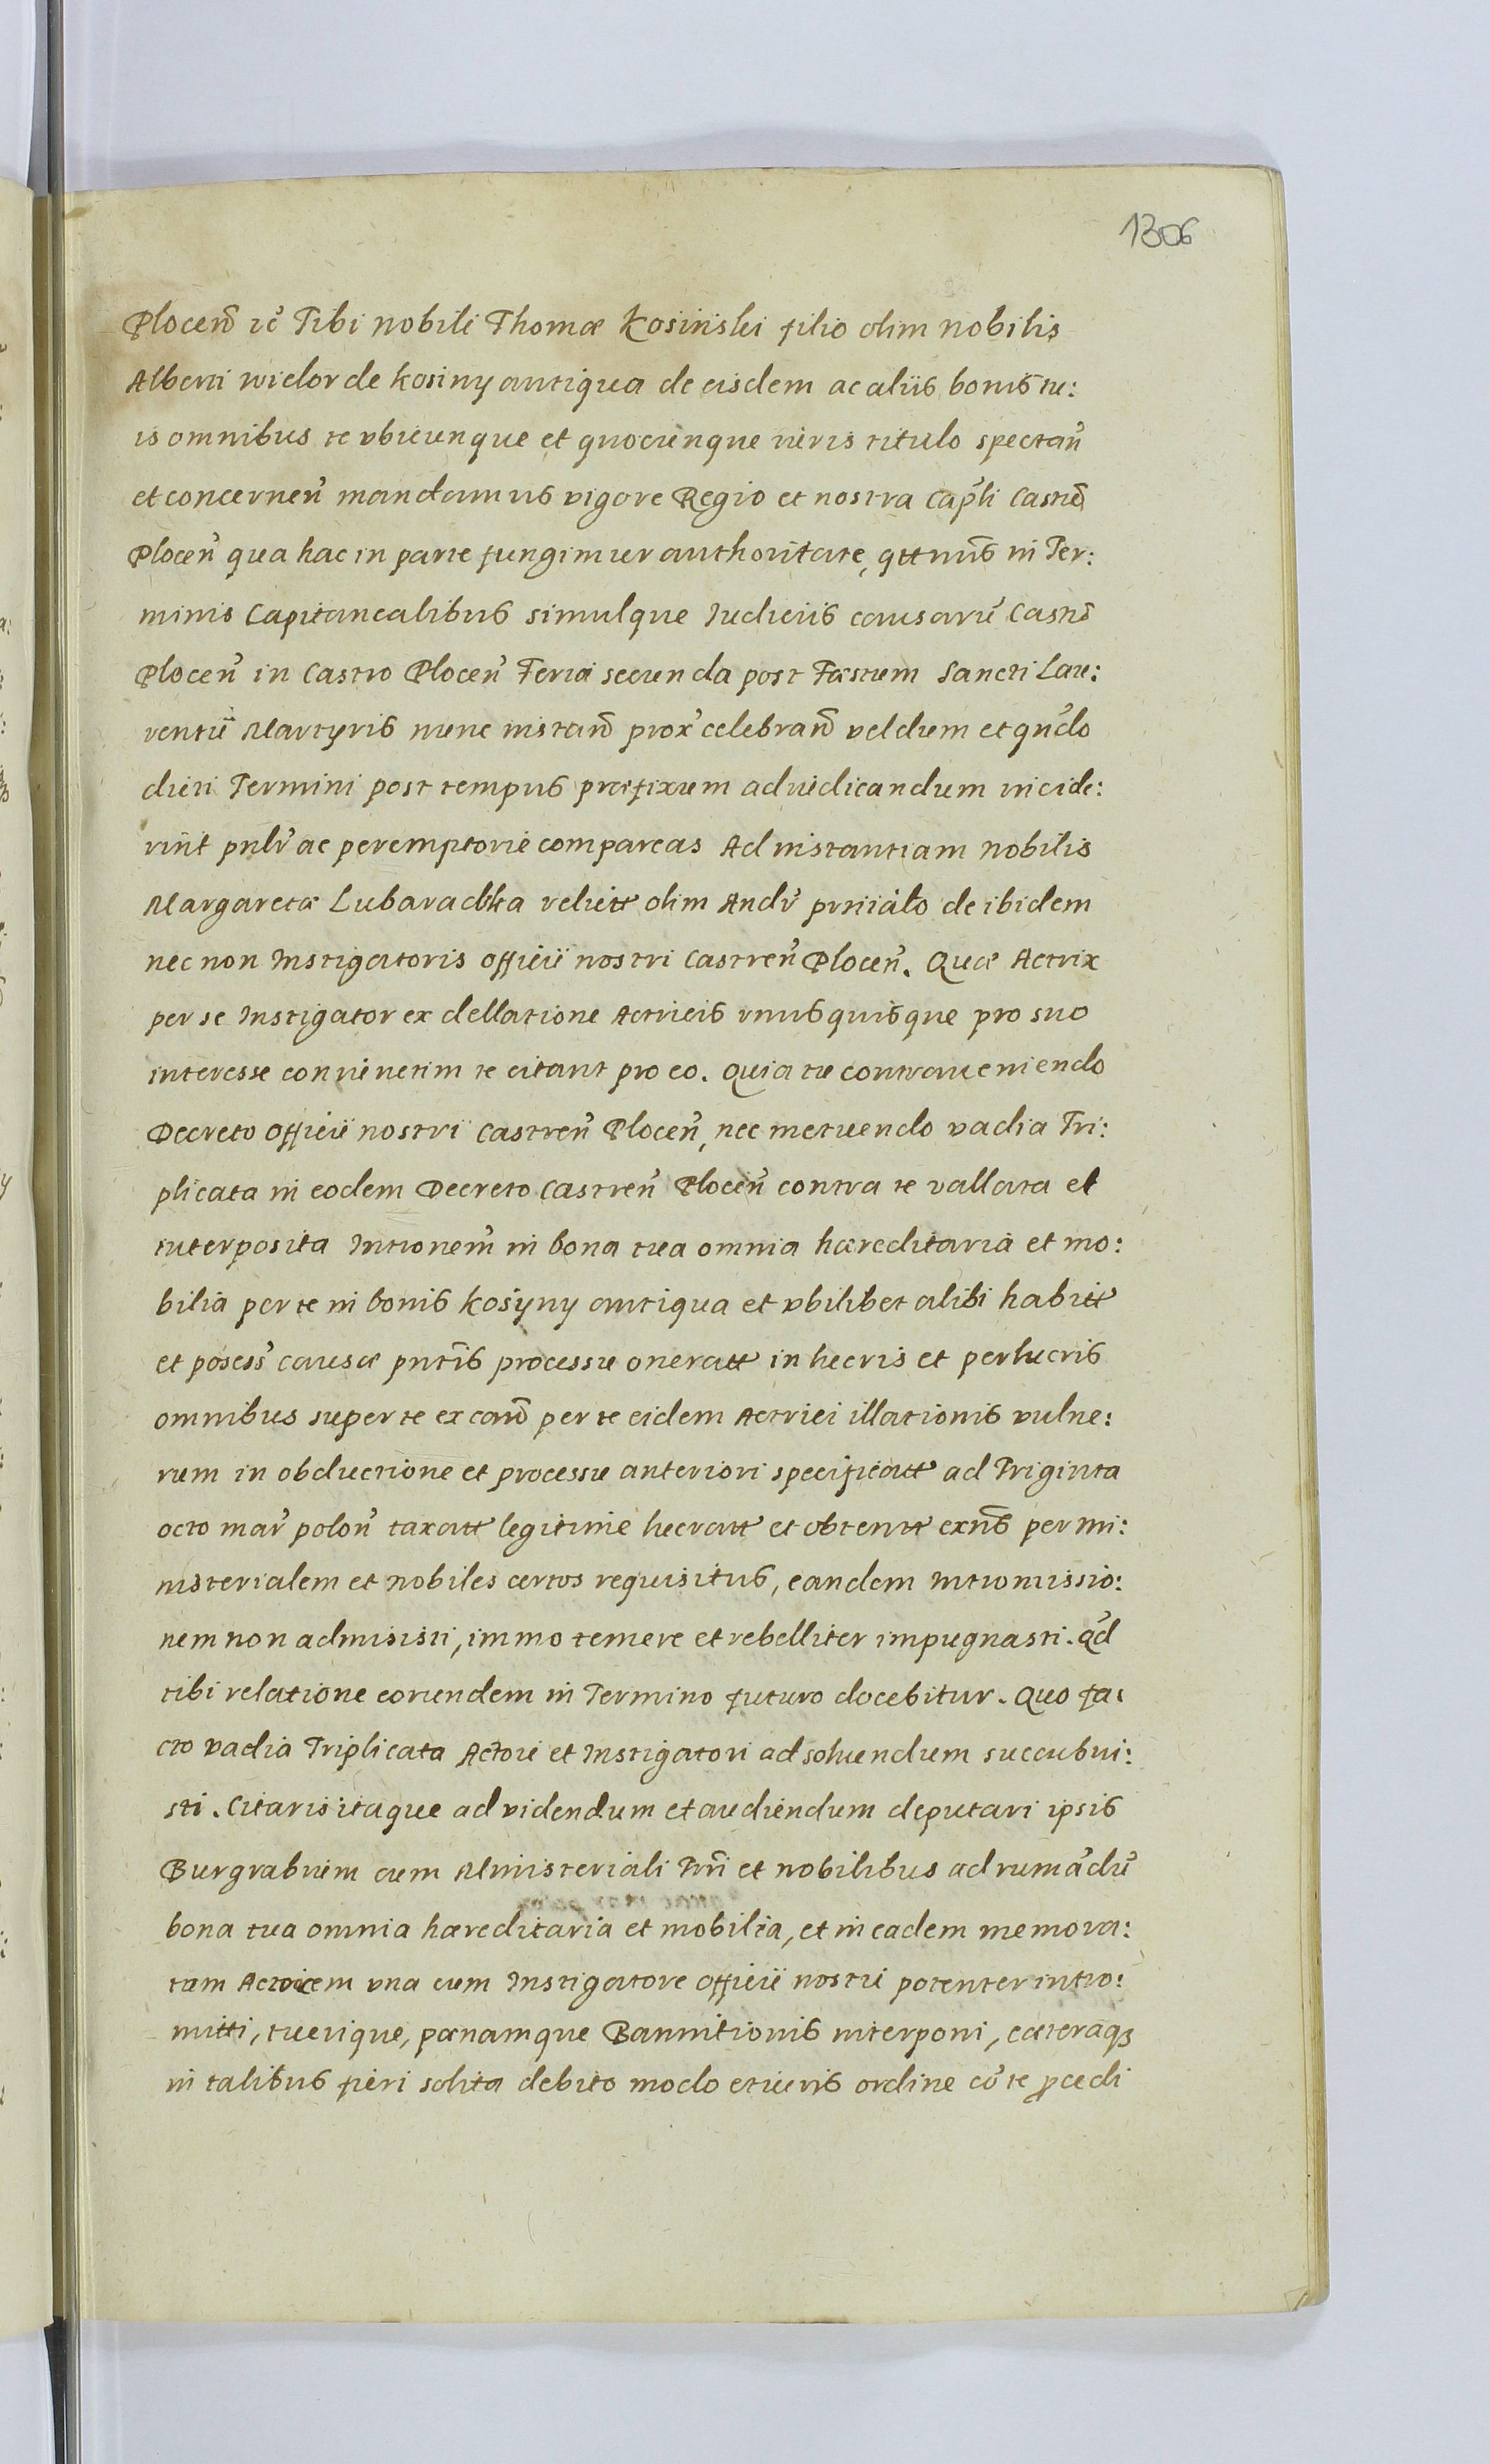 1306
Plocen̄ ic̄ Tibi nobili Thomæ Kosinski filio olim nobilis
Alberti widor de kosiny antiqua de eisdem ac aliis bonis tu:
is omnibus te vbicunque et quocunque iuris titulo spectan̄
et concernen̄ mandamus vigore Regio et nostra Cap̄li Castren̄
Plocen̄ qua hac in parte fungimur authoritate, qttnus̄ in Ter:
minis Capitanealibus simulque Iudiciis causarū Castrēn
Plocen̄ in Castro Plocen̄ Feria secunda post Fæstum Sancti Lau:
rentii Martyris nunc instan̄ prox̄ celebran̄ vel dum et qn̄do
dicti Termini post tempus præfixum adiudicandum incide:
rint pnlr̄ ac peremptorie compareas Ad instantiam nobilis
Margaretæ Lubaradzka relictt olim Andr̄ de ibidem
nec non Instigatoris officii nostri Castren̄ Plocen̄. Quæ Actrix
per se Instigator ex dellatione Actricis vnusquisque pro suo
interesse coniunctim te citant pro eo. Quia tu contraueniendo
Decreto officii nostri Castren̄ Plocen̄, nec metuendo vadia Tri:
plicata in eodem Decreto Castren̄ Plocen̄ contra te vallata et
interposita Intronem̄ in bona tua omnia hæreditaria et mo:
bilia per te in bonis kosyny antiqua et vbilibet alibi habitt
et posess̄ causæ pnt̄is processu oneratt in lucris et perlucris
omnibus super te ex caus̄ per te eidem Actrici illationis vulne:
rum in obductione et processu anteriori specificatt ad Triginta
octo mar̄ polon̄ taxatt legitime lucratt et obtentt exn̄s per Mi:
nisterialem et nobiles certos requisitus, eandem Intromissio:
nem non admisisti, immo temere et rebelliter impugnasti. Qd̄
tibi relatione eorundem in Termino futuro docebitur. Quo fa:
cto vadia Triplicata Actori et Instigatori ad soluendum succubui:
sti. Citaris itaque ad videndum et audiendum deputari ipsis
Burgrabium cum Ministeriali Trn̄i et nobilibus ad rumādū
bona tua omnia hæreditaria et mobilia, et in eadem memora:
tam Actricem vna cum Instigatore officii nostri potenter intro:
mitti, tuerique, pænamque Bannitionis interponi, cæteraqꝫ
in talibus fieri solita debito modo et iuris ordine cō te ꝓcedi